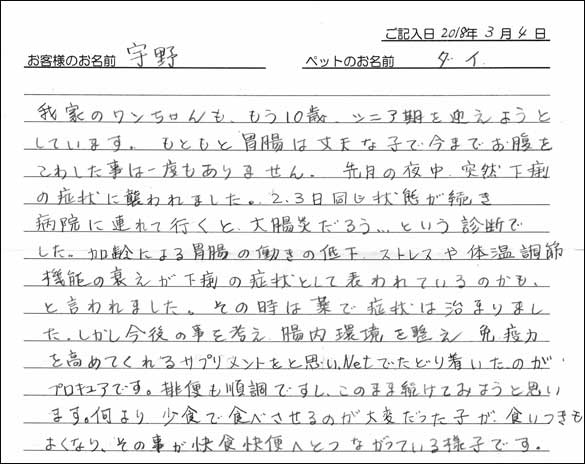 ご記入日 2018年 3月 4日
お客様のお名前 宇野 ペットのお名前 ダイ
我家のワンちゃんも、もう10歳、シニア期を迎えようと
しています。もともと胃腸は丈夫な子で今までお腹を
こわした事は一度もありません。先月の夜中、突然下痢
の症状に襲われました。2.3日同じ状態が続き
病院に連れて行くと、大腸炎だろう…という診断で
した。加齢による胃腸の働きの低下、ストレスや体温調節
機能の衰えが下痢の症状として表われているのかも、
と言われました。その時は薬で症状は治まりまし
た。しかし今後の事を考え、腸内環境を整え、免疫力
を高めてくれるサプリメントをと思い、Netでたどり着いたのが、
プロキュアです。排便も順調ですし、このまま続けてみようと思い
ます。何より、少食で食べさせるのが大変だった子が、食いつきも
よくなり、その事が快食快便へとつながっている様子です。